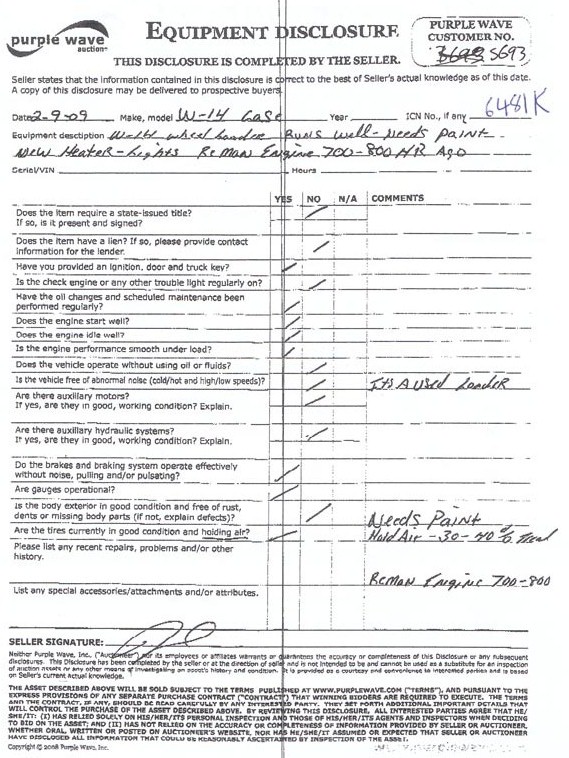 purple wave
auction
EQUIPMENT DISCLOSURE
PURPLE WAVE
CUSTOMER NO.
5693
THIS DISCLOSURE IS COMPLETED BY THE SELLER.
Seller states that the information contained in this disclosure is correct to the best of Seller's actual knowledge as of this date.
A copy of this disclosure may be delivered to prospective buyers.
6481K
Date 2-9-09 Make, model W-14 Case Year ICN No., if any
Equipment description W-14 wheel Loader Runs well - Needs Paint
New Heater - Lights Reman Engine 700-800 HR Ago
Serial/VIN Hours
YES NO N/A COMMENTS
Does the item require a state-issued title?
If so, is it present and signed?
Does the item have a lien? If so, please provide contact
information for the lender.
Have you provided an ignition, door and truck key?
Is the check engine or any other trouble light regularly on?
Have the oil changes and scheduled maintenance been
performed regularly?
Does the engine start well?
Does the engine idle well?
Is the engine performance smooth under load?
Does the vehicle operate without using oil or fluids?
Is the vehicle free of abnormal noise (cold/hot and high/low speeds)? Its A Used Loader
Are there auxiliary motors?
If yes, are they in good, working condition? Explain.
Are there auxiliary hydraulic systems?
If yes, are they in good, working condition? Explain.
Do the brakes and braking system operate effectively
without noise, pulling and/or pulsating?
Are gauges operational?
Is the body exterior in good condition and free of rust,
dents or missing body parts (if not, explain defects)? Needs Paint
Are the tires currently in good condition and holding air? Hold Air - 30-40% Tread
Please list any recent repairs, problems and/or other
history.
Reman Engine 700-800
List any special accessories/attachments and/or attributes.
SELLER SIGNATURE:
Neither Purple Wave, Inc. ("Auctioneer") nor its employees or affiliates warrants or guarantees the accuracy or completeness of this Disclosure or any subsequent
disclosures. This Disclosure has been completed by the seller or at the direction of seller and is not intended to be and cannot be used as a substitute for an inspection
of auction assets or any other means of investigating an asset's history and condition. It is provided as a courtesy and convenience to interested parties and is based
on Seller's current actual knowledge.
THE ASSET DESCRIBED ABOVE WILL BE SOLD SUBJECT TO THE TERMS PUBLISHED AT WWW.PURPLEWAVE.COM ("TERMS"), AND PURSUANT TO THE
EXPRESS PROVISIONS OF ANY SEPARATE PURCHASE CONTRACT ("CONTRACT") THAT WINNING BIDDERS ARE REQUIRED TO EXECUTE. THE TERMS
AND THE CONTRACT, IF ANY, SHOULD BE READ CAREFULLY BY ANY INTERESTED PARTY. THEY SET FORTH ADDITIONAL IMPORTANT DETAILS THAT
WILL CONTROL THE PURCHASE OF THE ASSET DESCRIBED ABOVE. BY REVIEWING THIS DISCLOSURE, ALL INTERESTED PARTIES AGREE THAT HE/
SHE/IT: (I) HAS RELIED SOLELY ON HIS/HER/ITS PERSONAL INSPECTION AND THOSE OF HIS/HER/ITS AGENTS AND INSPECTORS WHEN DECIDING
TO BID ON THE ASSET; AND (II) HAS NOT RELIED ON THE ACCURACY OR COMPLETENESS OF INFORMATION PROVIDED BY SELLER OR AUCTIONEER,
WHETHER ORAL, WRITTEN OR POSTED ON AUCTIONEER'S WEBSITE, NOR HAS HE/SHE/IT ASSUMED OR EXPECTED THAT SELLER OR AUCTIONEER
HAVE DISCLOSED ALL INFORMATION THAT COULD BE REASONABLY ASCERTAINED BY INSPECTION OF THE ASSET.
Copyright © 2008 Purple Wave, Inc.
www.purplewave.com